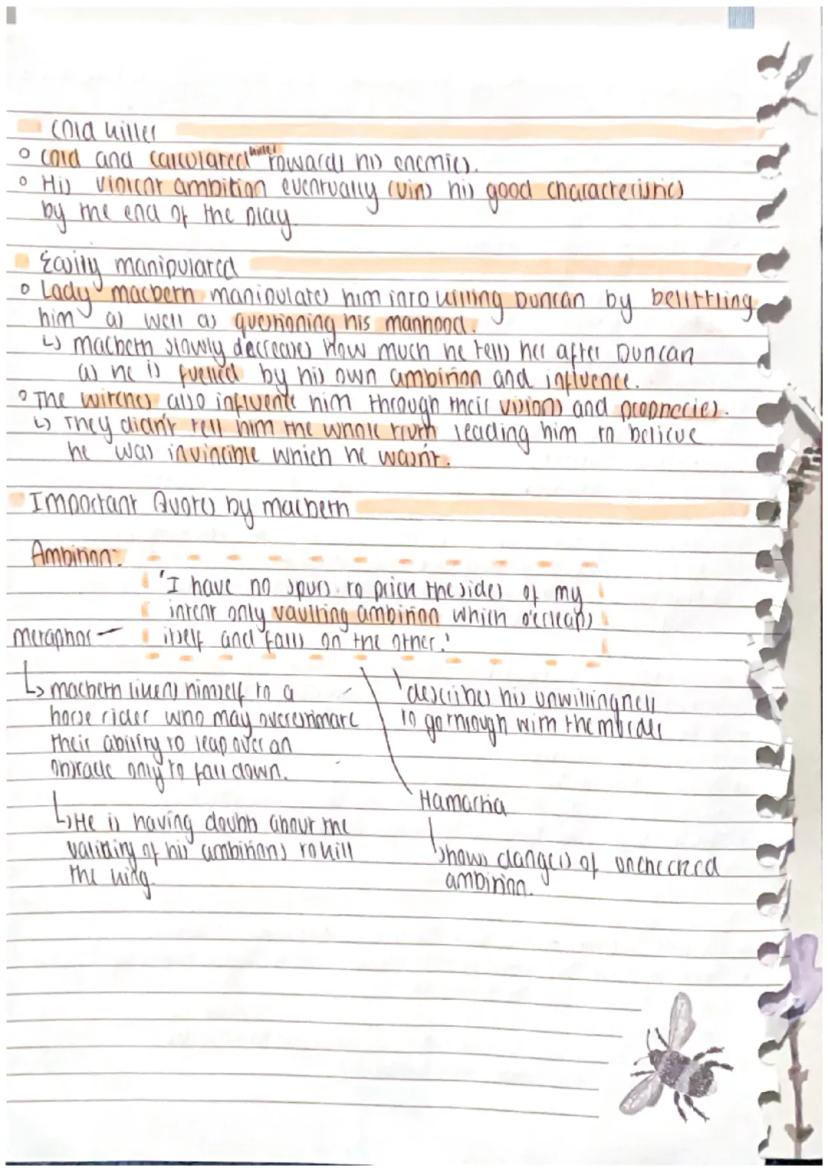 Cold killer
Cold and calculated killer towards his enemies.
His violent ambition eventually ruins his good characteristics
by the end of the play
Easily manipulated
Lady macbeth manipulates him into killing Duncan by belittling
him as well as questioning his manhood.
↳ macbeth slowly decreases how much he tells her after Duncan
as he is fuelled by his own ambition and influence.
The witches also influence him through their visions and prophecies.
↳ They didn't tell him the whole truth leading him to believe
he was invincible which he wasn't.
Important Quotes by macbeth
Ambition:
'I have no spurs to prick the sides of my
intent only vaulting ambition which o'erleaps
itself and falls on the other.'
metaphor
↳ macbeth likens himself to a
horse rider who may overestimate
their ability to leap over an
obstacle only to fall down.
↳ He is having doubts about the
validity of his ambitions to kill
the king.
describes his unwillingness
to go through with the murder
Hamartia
shows dangers of unchecked
ambition.